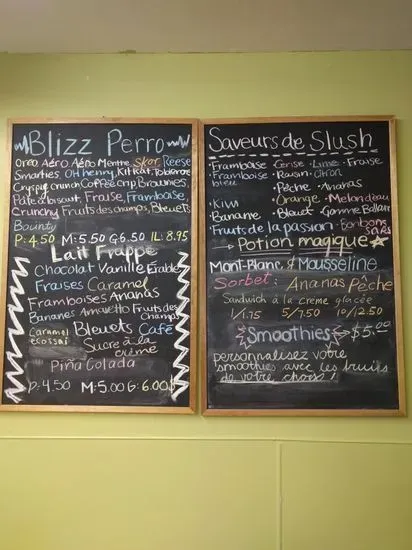 Blizz Perro
Oreo, Aéro, Aéro Menthe, Skor, Reese
Smarties, OH henry, Kitkat, Toblerone
Cryspy Crunch Coffee Crip, Brownies,
Pâte à biscuit, Fraise, Framboise,
Crunchy Fruits des champs, Bleuets
Bounty
P: 4.50 M: 5.50 G 6.50 1L: 8.95
Lait Frappé
Chocolat Vanille Érable
Fraises Caramel
Framboises Ananas
Bananes Amaretto Fruits des champs
Caramel écossai Bleuets Café
Sucre à la crème
Piña Colada
P: 4.50 M: 5.00 G: 6.00$
Saveurs de Slush
·Framboise ·Cerise ·Lime ·Fraise
·Framboise bleue ·Raisin ·Citron
·Pêche ·Ananas
·Kiwi ·Orange ·Melon d'eau
Banane ·Bleuet ·Gomme Balloune
Fruits de la passion ·Bonbons sûrs
Potion magique
Mont-Blanc & Mousseline
Sorbet: Ananas Pêche
Sandwich à la crème glacée
1/1.75 5/7.50 10/12.50
Smoothies $5.00
personnalisez votre
smoothies avec les fruits
de votre choix!